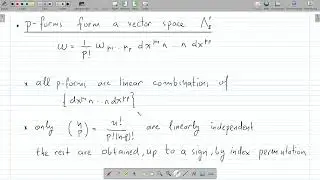 • p-forms form a vector space Λ'ₚ
ω = 1/p! ω_{μ₁...μₚ} dx^{μ₁} ∧ ... ∧ dx^{μₚ}
* all p-forms are linear combination of
{dx^{μ₁} ∧ ... ∧ dx^{μₚ}}
* only (n p) = n!/p!(n-p)! are linearly independent
the rest are obtained, up to a sign, by index permutation